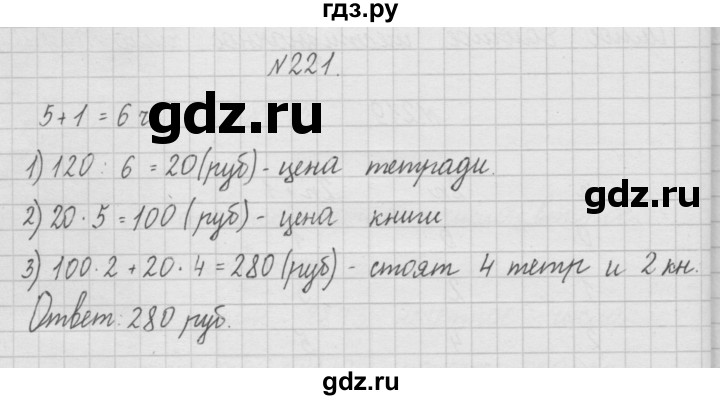 гдз.ру
№221.
5+1=6 ч
1) 120 : 6 = 20 (руб) - цена тетради.
2) 20 · 5 = 100 (руб) - цена книги
3) 100 · 2 + 20 · 4 = 280 (руб) - стоят 4 тетр и 2 кн.
Ответ: 280 руб.
gdz.ru
gdz.ru
gdz.ru